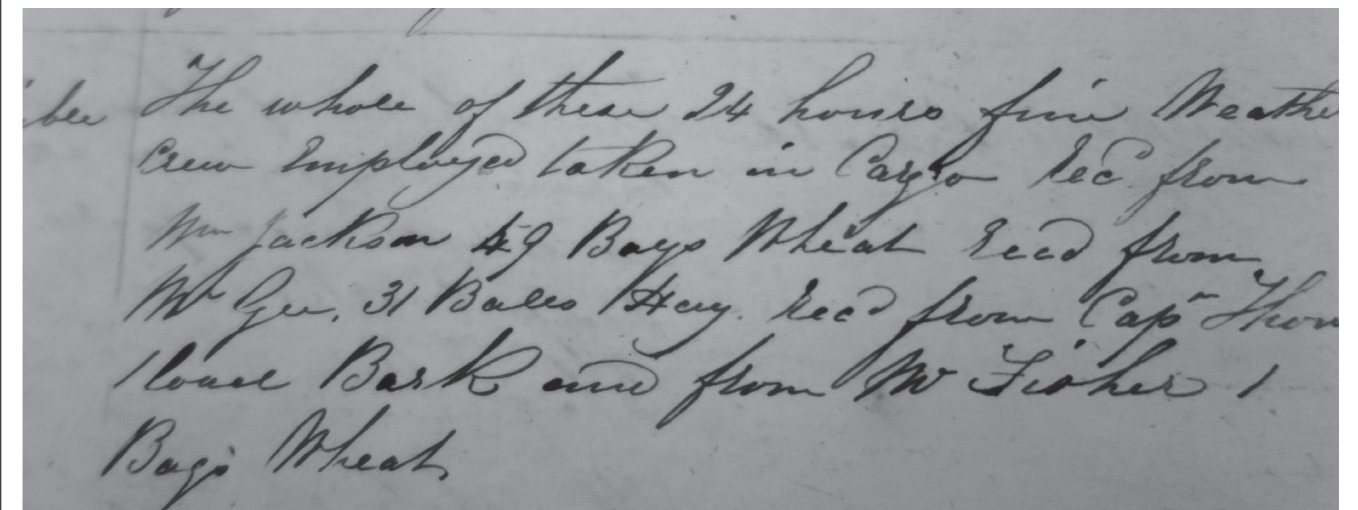 The whole of these 24 hours fine Weathe
Crew Employed taken in Cargo Recd from
Wm Jackson 49 Bags Wheat Recd from
Mr Gee, 31 Bales Hay. Recd from Capn Thom
1 Bark and from Mr Fisher 1
Bags Wheat